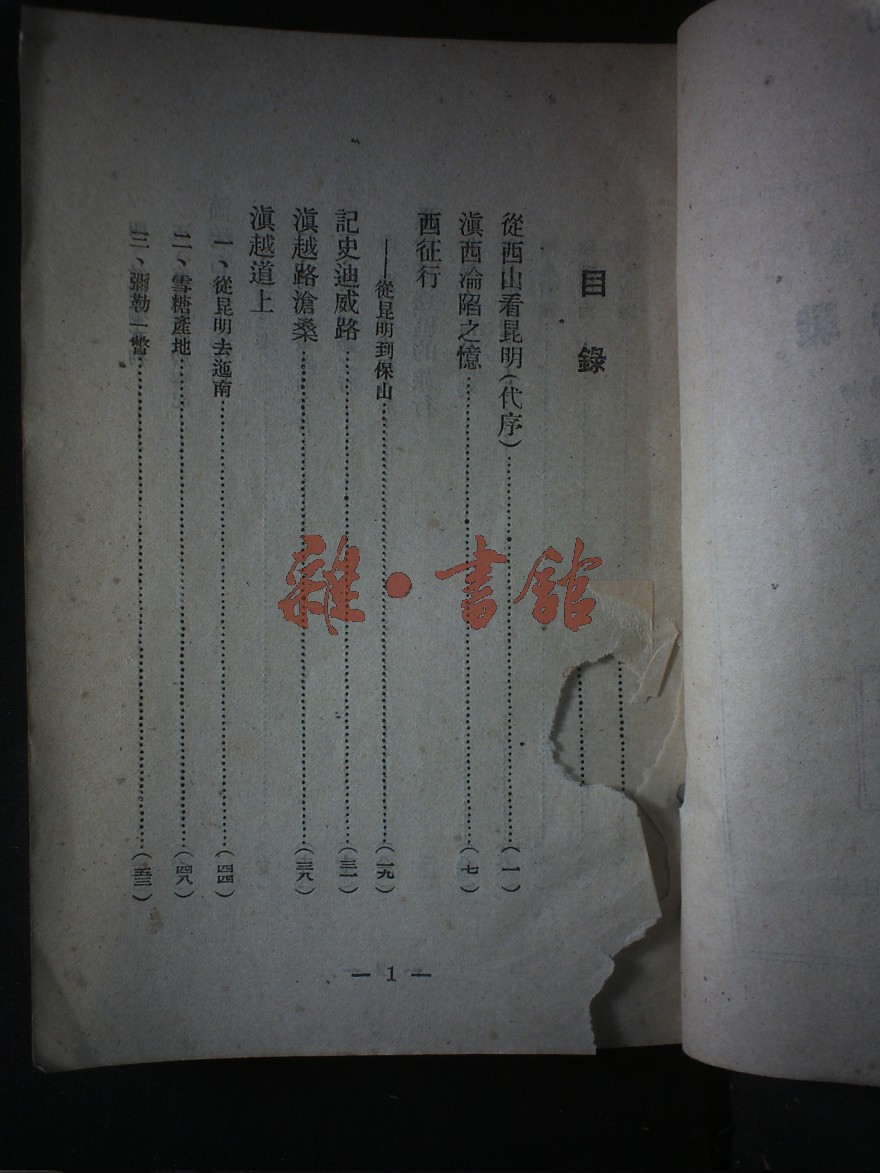 目錄
從西山看昆明(代序)……(一)
滇西淪陷之憶……(七)
西征行
——從昆明到保山……(一九)
記史迪威路……(三一)
滇越路滄桑……(三八)
滇越道上
一、從昆明去迤南……(四四)
二、雪糖產地……(四八)
三、彌勒一瞥……(五三)
— 1 —
雜·書館